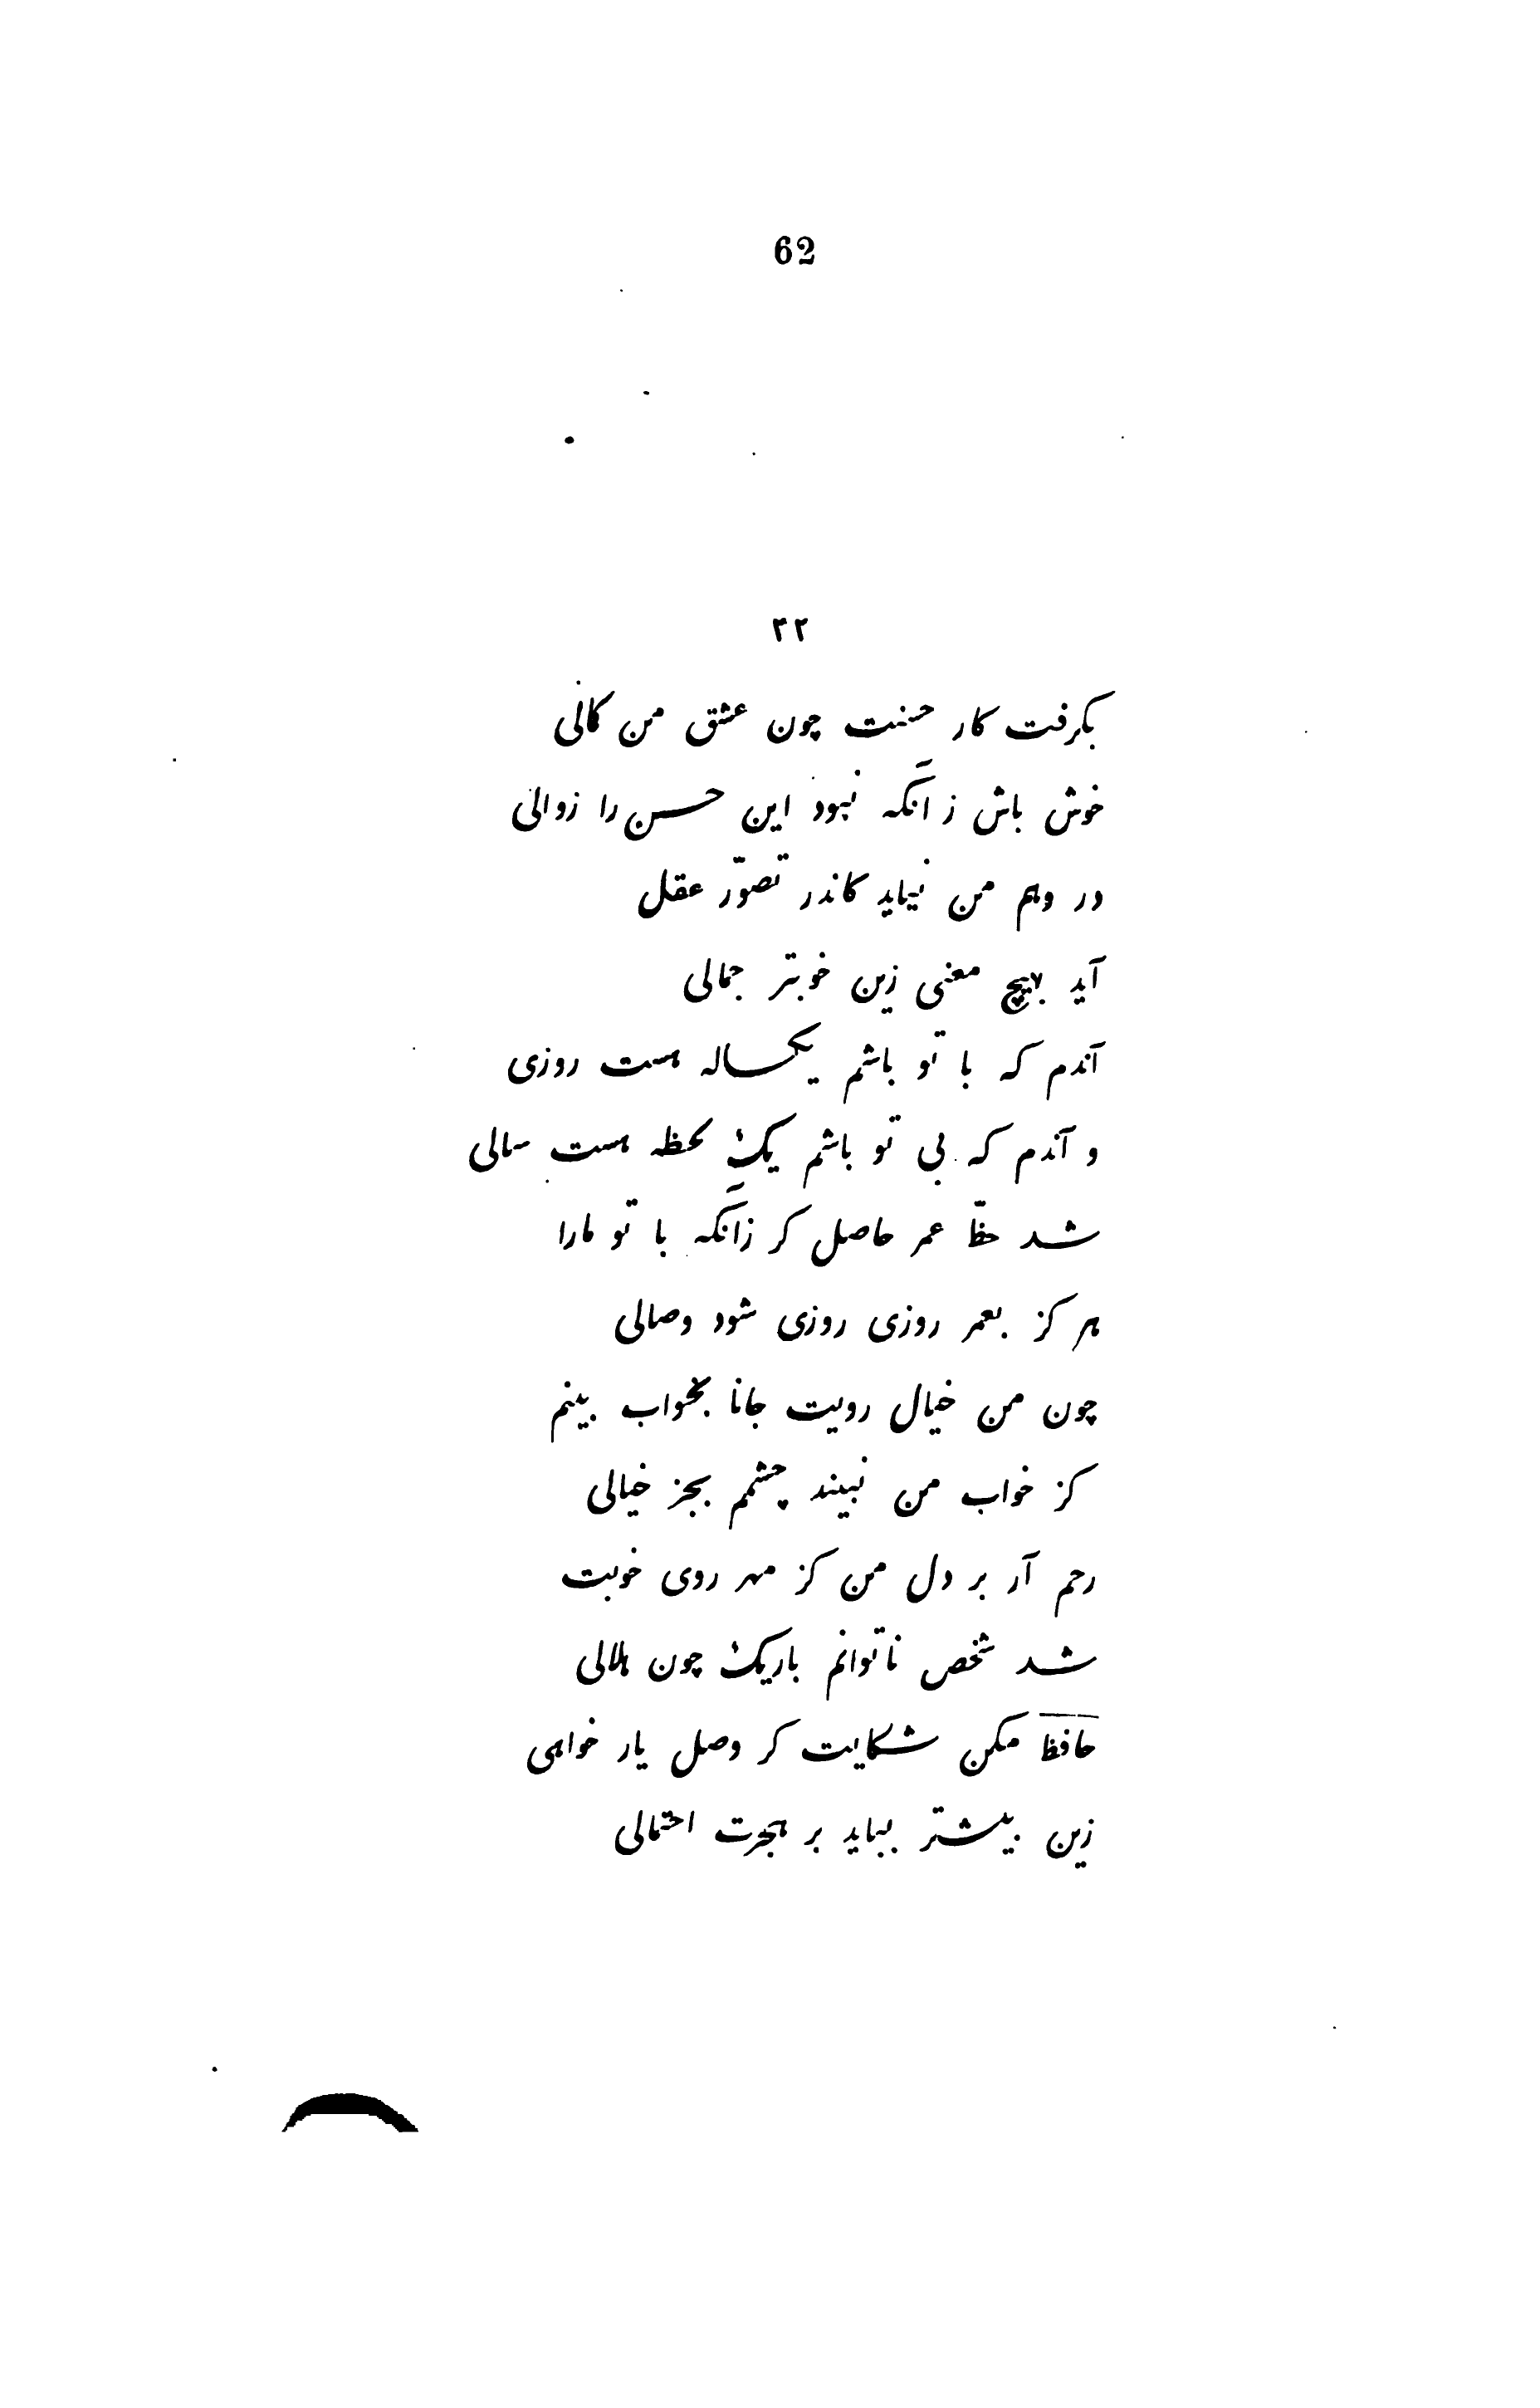 62
۲۲
بکرفت کار حسنت چون عشق من کمالی
خوش باش ز آنکه نبود این حسن را زوالی
در وهم من نیاید کاندر تصوّر عقل
آید بهیچ معنی زین خوبتر جمالی
آندم که با تو باشم یکساله هست روزی
و آندم که بی تو باشم یک لحظه هست سالی
شد حظّ عمر حاصل کر زآنکه با تو مارا
هرکز بعمر روزی روزی شود وصالی
چون من خیال رویت جانا بخواب بینم
کز خواب من نبیند چشمم بجز خیالی
رحم آر بر دل من کز مهر روی خوبت
شد شخص ناتوانم باریک چون هلالی
حافظ مکن شکایت کر وصل یار خواهی
زین بیشتر بباید بر هجرت احتمالی